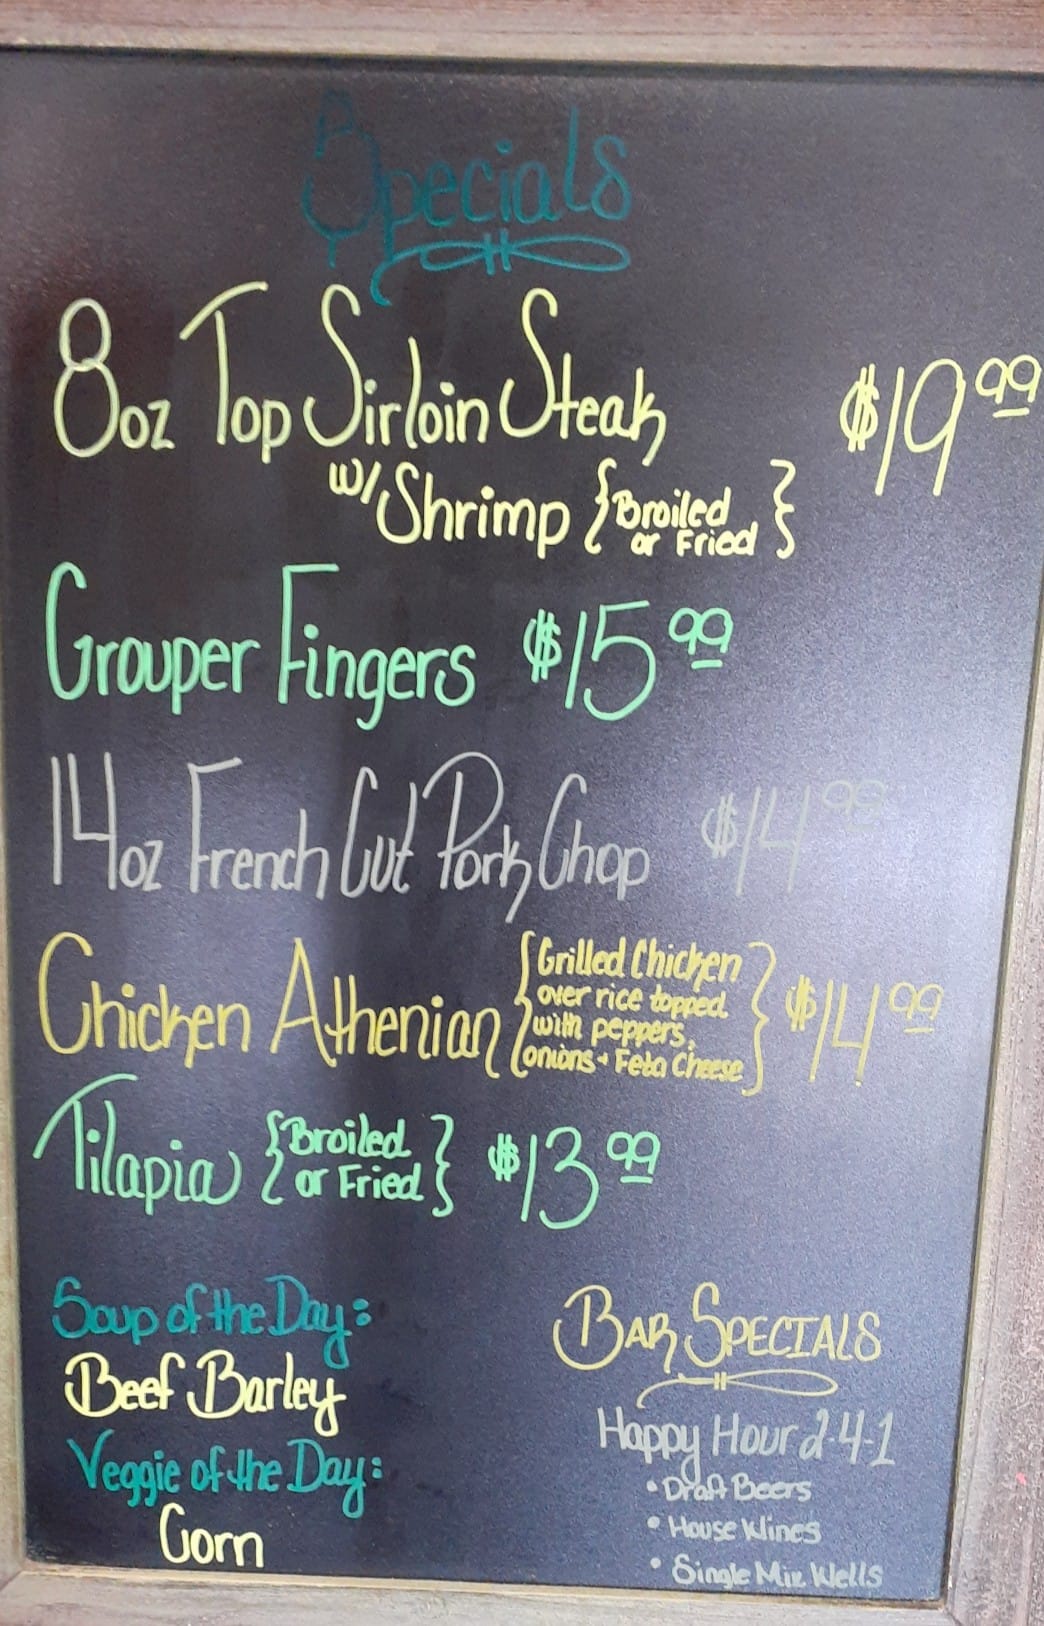 Specials
8oz Top Sirloin Steak $19.99
w/ Shrimp {Broiled or Fried}
Grouper Fingers $15.99
14oz French Cut Pork Chop $14.99
Chicken Athenian {Grilled Chicken
over rice topped
with peppers,
onions + Feta Cheese} $14.99
Tilapia {Broiled or Fried} $13.99
Soup of the Day:
Beef Barley
Veggie of the Day:
Corn
Bar Specials
Happy Hour 2-4-1
• Draft Beers
• House Wines
• Single Mix Wells